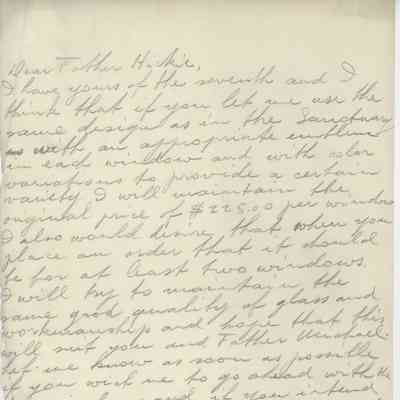 Dear Father Hickie,
I have yours of the seventh and I
think that if you let me use the
same design as in the Sanctuary
with an appropriate emblem
in each window and with color
variations to provide a certain
variety I will maintain the
original price of $225.00 per window
I also would desire that when you
place an order that it should
be for at least two windows.
I will try to maintain the
same good quality of glass and
workmanship and hope that this
will suit you and Father
let me know as soon as possible
if you wish me to go ahead with the
and if you intend